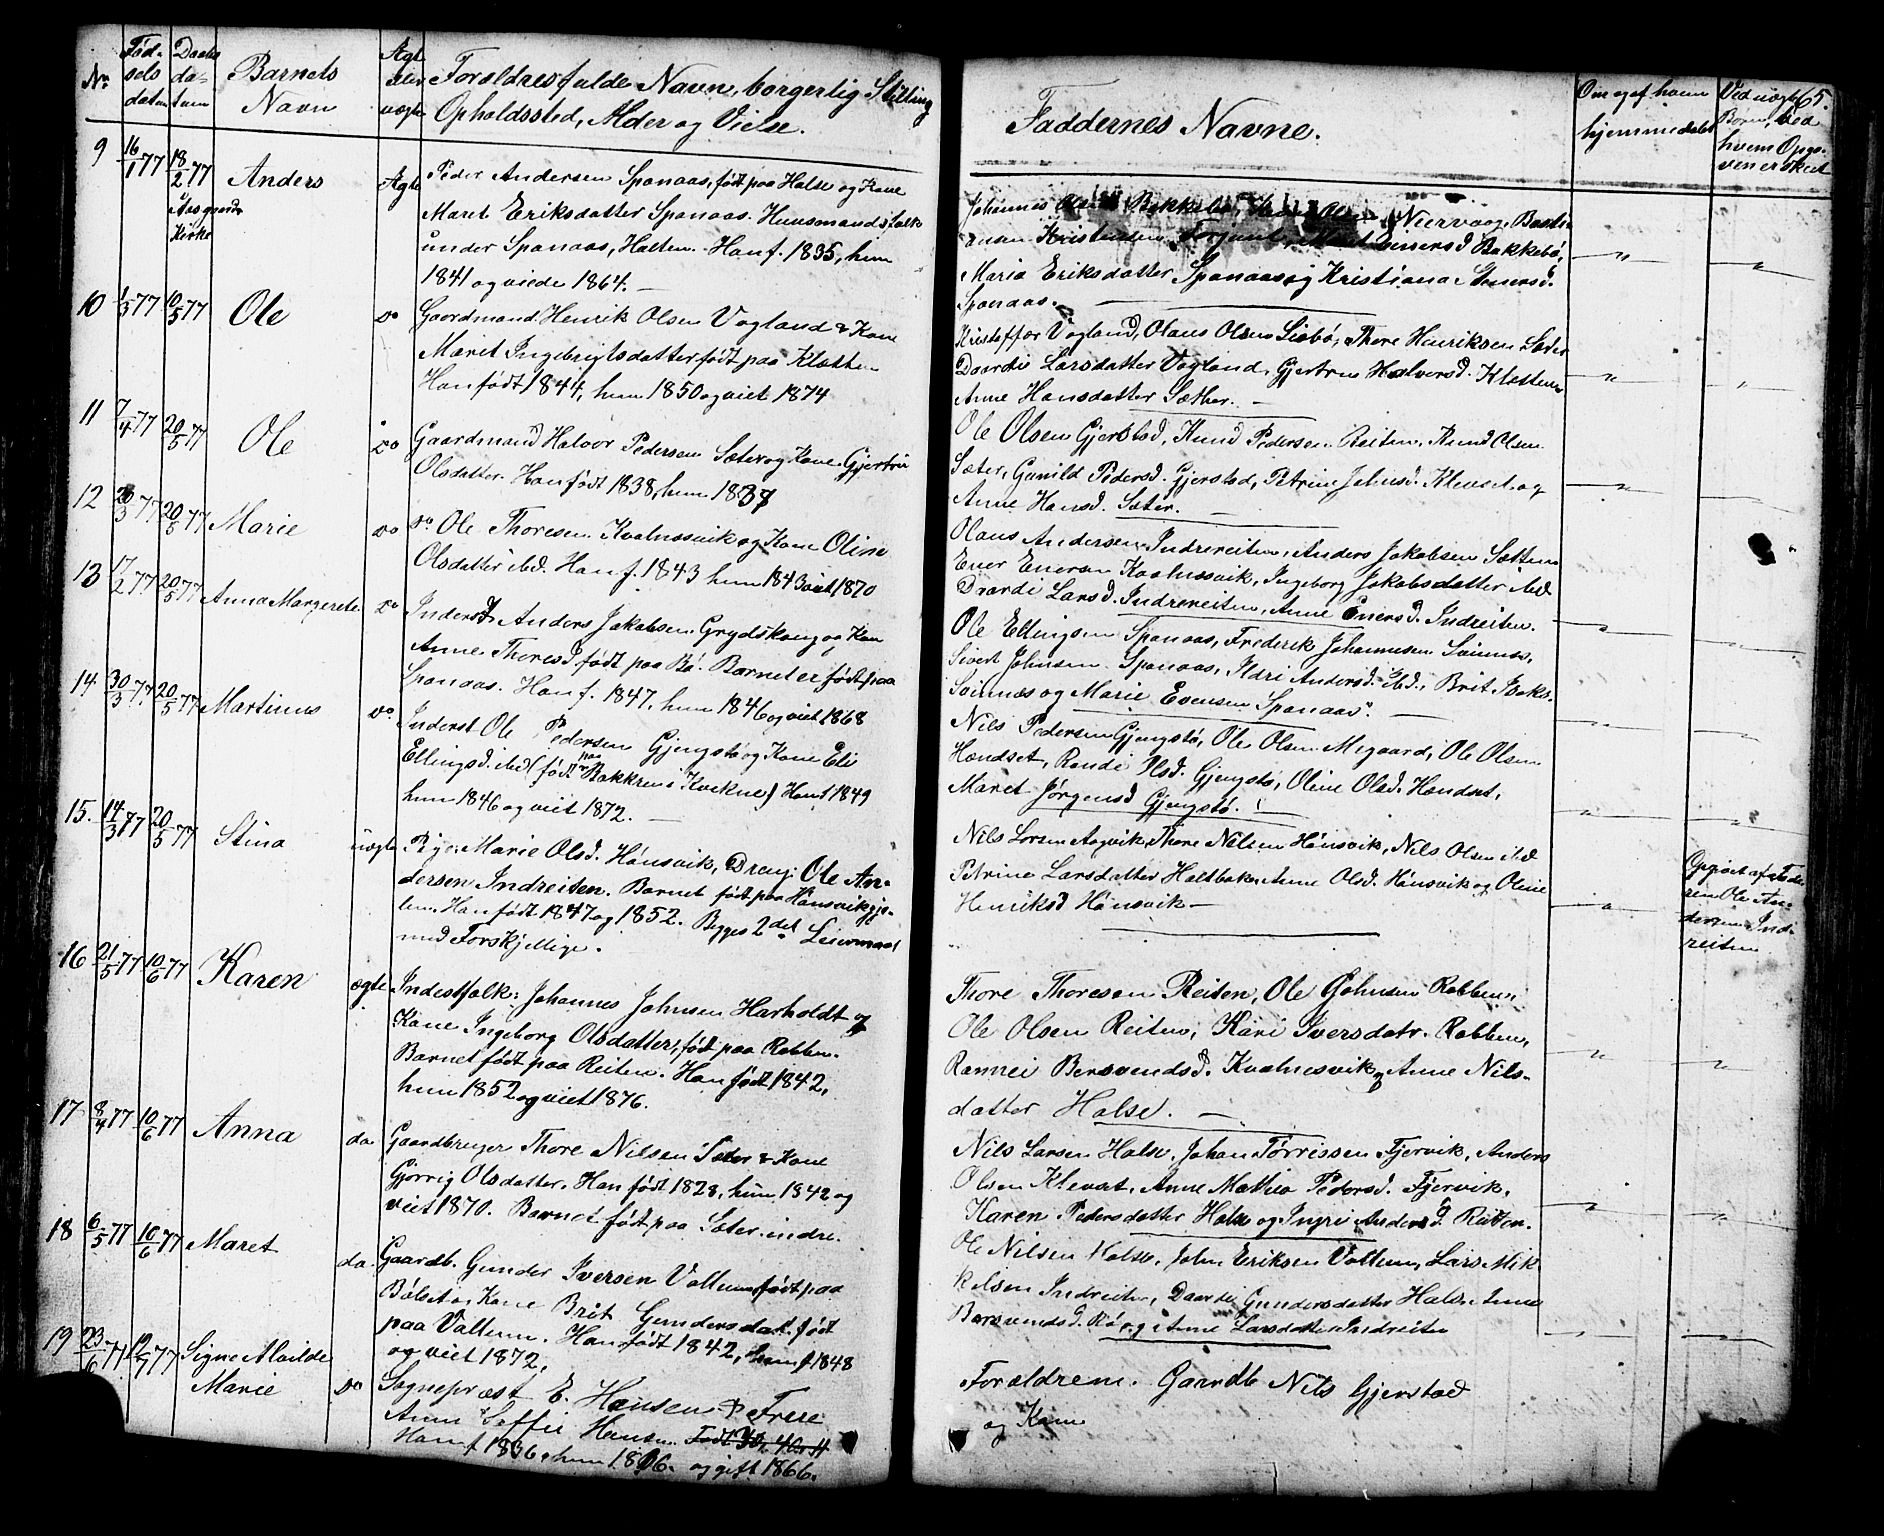 No
Fød-
sels
datum
Daabs
da-
tum
Barnets
Navn
Ægt
eller
uægte
Forældres fulde Navn, borgerlig Stilling
Opholdssted, Alder og Vielse.
9 16/1 77 18/2 77 Anders Ægte
Kirke
Peder Andersen Spanaas, født paa Halse og Kone
Maret Eriksdatter Spanaas. Huusmandsfolk
under Spanaas, Halten. Han f. 1835, hun
1841 og viede 1864. —
10 1/3 77 10/5 77 Ole do
Gaardmand Henrik Olsen Vagland & Kone
Maret Ingebrigtsdatter født paa Kletten
Han født 1844, hun 1850 og viet 1874
11 7/4 77 20/5 77 Ole do
Gaardmand Halvor Pedersen Sæter og Kone Gjertru
Olsdatter. Han født 1838, hun 1837
12 20/3 77 20/5 77 Marie do
do Ole Thoresen Kvalnesvik og Kone Oline
Olsdatter ibd. Han f. 1843 hun 1843 viet 1870
13 17/2 77 20/5 77 Anna Margrete do
Inderst Anders Jakobsen Grydskoug og Kone
Anne Thoresd. født paa Bø. Barnet er født paa
Spanaas. Han f. 1847, hun 1846 og viet 1868
14 30/3 77 20/5 77 Martinus do
Inderst Ole Pedersen Gjengstø og Kone Eli
Ellingsd. ibd (født paa Bakken i Kvekne) Han f 1849
hun 1846 og viet 1872. —
15. 14/3 77 20/5 77 Stina uægte
Pige Marie Olsd. Hønsvik, Dreng: Ole An-
dersen Indreiten. Barnet født paa Hønsvikgje-
len. Han født 1847 og 1852. Begges 2det Leiermaal
med Forskjellige.
16 21/5 77 10/6 77 Karen ægte
Indestfolk: Johannes Johnsen Harholdt og
Kone Ingeborg Olsdatter, født paa Robben.
Barnet født paa Reiten. Han født 1842,
hun 1852 og viet 1876.
17 8/4 77 10/6 77 Anna do.
Gaardbruger Thore Nilsen Sæter & Kone
Gjørrig Olsdatter. Han født 1828, hun 1842 og
viet 1870. Barnet født paa Sæter indre.
18 6/5 77 10/6 77 Maret do.
Gaardb. Gunder Iversen Valtum født paa
Bølset og Kone Brit Gundersdat. født
paa Valtum. Han født 1842, hun f 1848
og viet 1872.
19 23/6 77 77 Signe Marie do
Sognepræst E. Hansen & Frue
Hansen
Han f 1836, hun og gift 1866.
Faddernes Navne.
Om og af hvem
hjemmedøbt
Ved uægte
Børn, ved
hvem Opga-
ven er skeet
65.
Johannes Bakkebø, Olsen Niervaag, Basti-
ansen Kristensen Einersd Bakkebø,
Maria Eriksdatter Spanaas og Kristiana Steners d.
Spanaas. —
Kristoffer Vagland, Olaus Olsen Liabø, Thore Henriksen Sæter
Daardi Larsdatter Vagland, Gjertrue Halvorsd. Kletten
Anne Hansdatter Sæther. —
Ole Olsen Gjerstad, Knud Pedersen Reiten, Knud Olsen
Sæter, Gunild Pedersd. Gjerstad, Petrine Johnsd. Klevset og
Anne Hansd. Sæter. —
Olaus Andersen Indrereiten, Anders Jakobsen Sættem
Ener Enersen Kvalnesvik, Ingeborg Jakobsdatter ibd
Daardi Larsd. Indrereiten, Anne Enersd. Indreiten.
Ole Ellingsen Spanaas, Fredrik Johannesen
Sivert Johnsen Spanaas, Ildri Andersd. ibd., Brit
og Marie Evensen Spanaas. —
Nils Pedersen Gjengstø, Ole Olsen Megaard, Ole Olsen
Hendset, Rande Olsd. Gjengstø, Oline Olsd. Hendset,
Maret Jørgensd Gjengstø. —
Nils Larsen Aagvik, Thore Nilsen Hønsvik, Nils Olsen ibd
Petrine Larsdatter Haltbak, Anne Olsd. Hønsvik og Oline
Henriksd Hønsvik —
Opgivet af
Ole An-
dersen Ind-
reiten
Thore Thoresen Reiten, Ole Johnsen Robben,
Ole Olsen Reiten, Kari Iversdatr. Robben,
Rannei Bersvendsd. Kvalnesvik og Anne Nils-
datter Halse. —
Nils Larsen Halse, Johan Tørrissen Fjervik, Anders
Olsen Klevset, Anne Mathia Pedersd. Fjervik,
Karen Pedersdatter Halse og Ingri Andersd. Reiten.
Ole Nilsen Halse, John Eriksen Valtum, Lars Mik
kelsen Indreiten, Daardi Gundersdatter Halse, Anne
Bersvendsd. Bø og Anne Larsdatter Indreiten
Forældrene. Gaardb Nils Gjerstad
og Kone